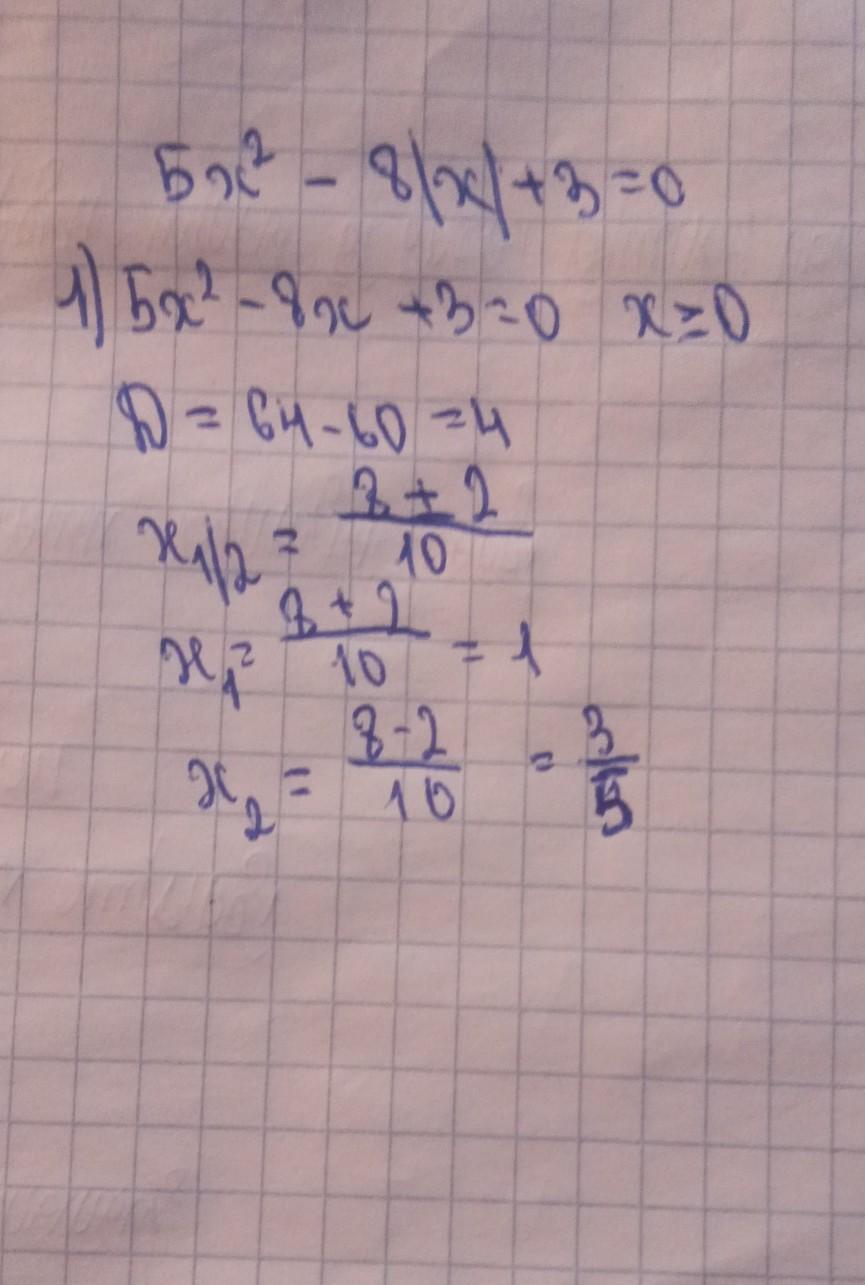 5x² - 8|x| + 3 = 0
1) 5x² - 8x + 3 = 0   x ≥ 0
D = 64 - 60 = 4
x₁/₂ = (8 ± 2)/10
x₁ = (8 + 2)/10 = 1
x₂ = (8 - 2)/10 = 3/5